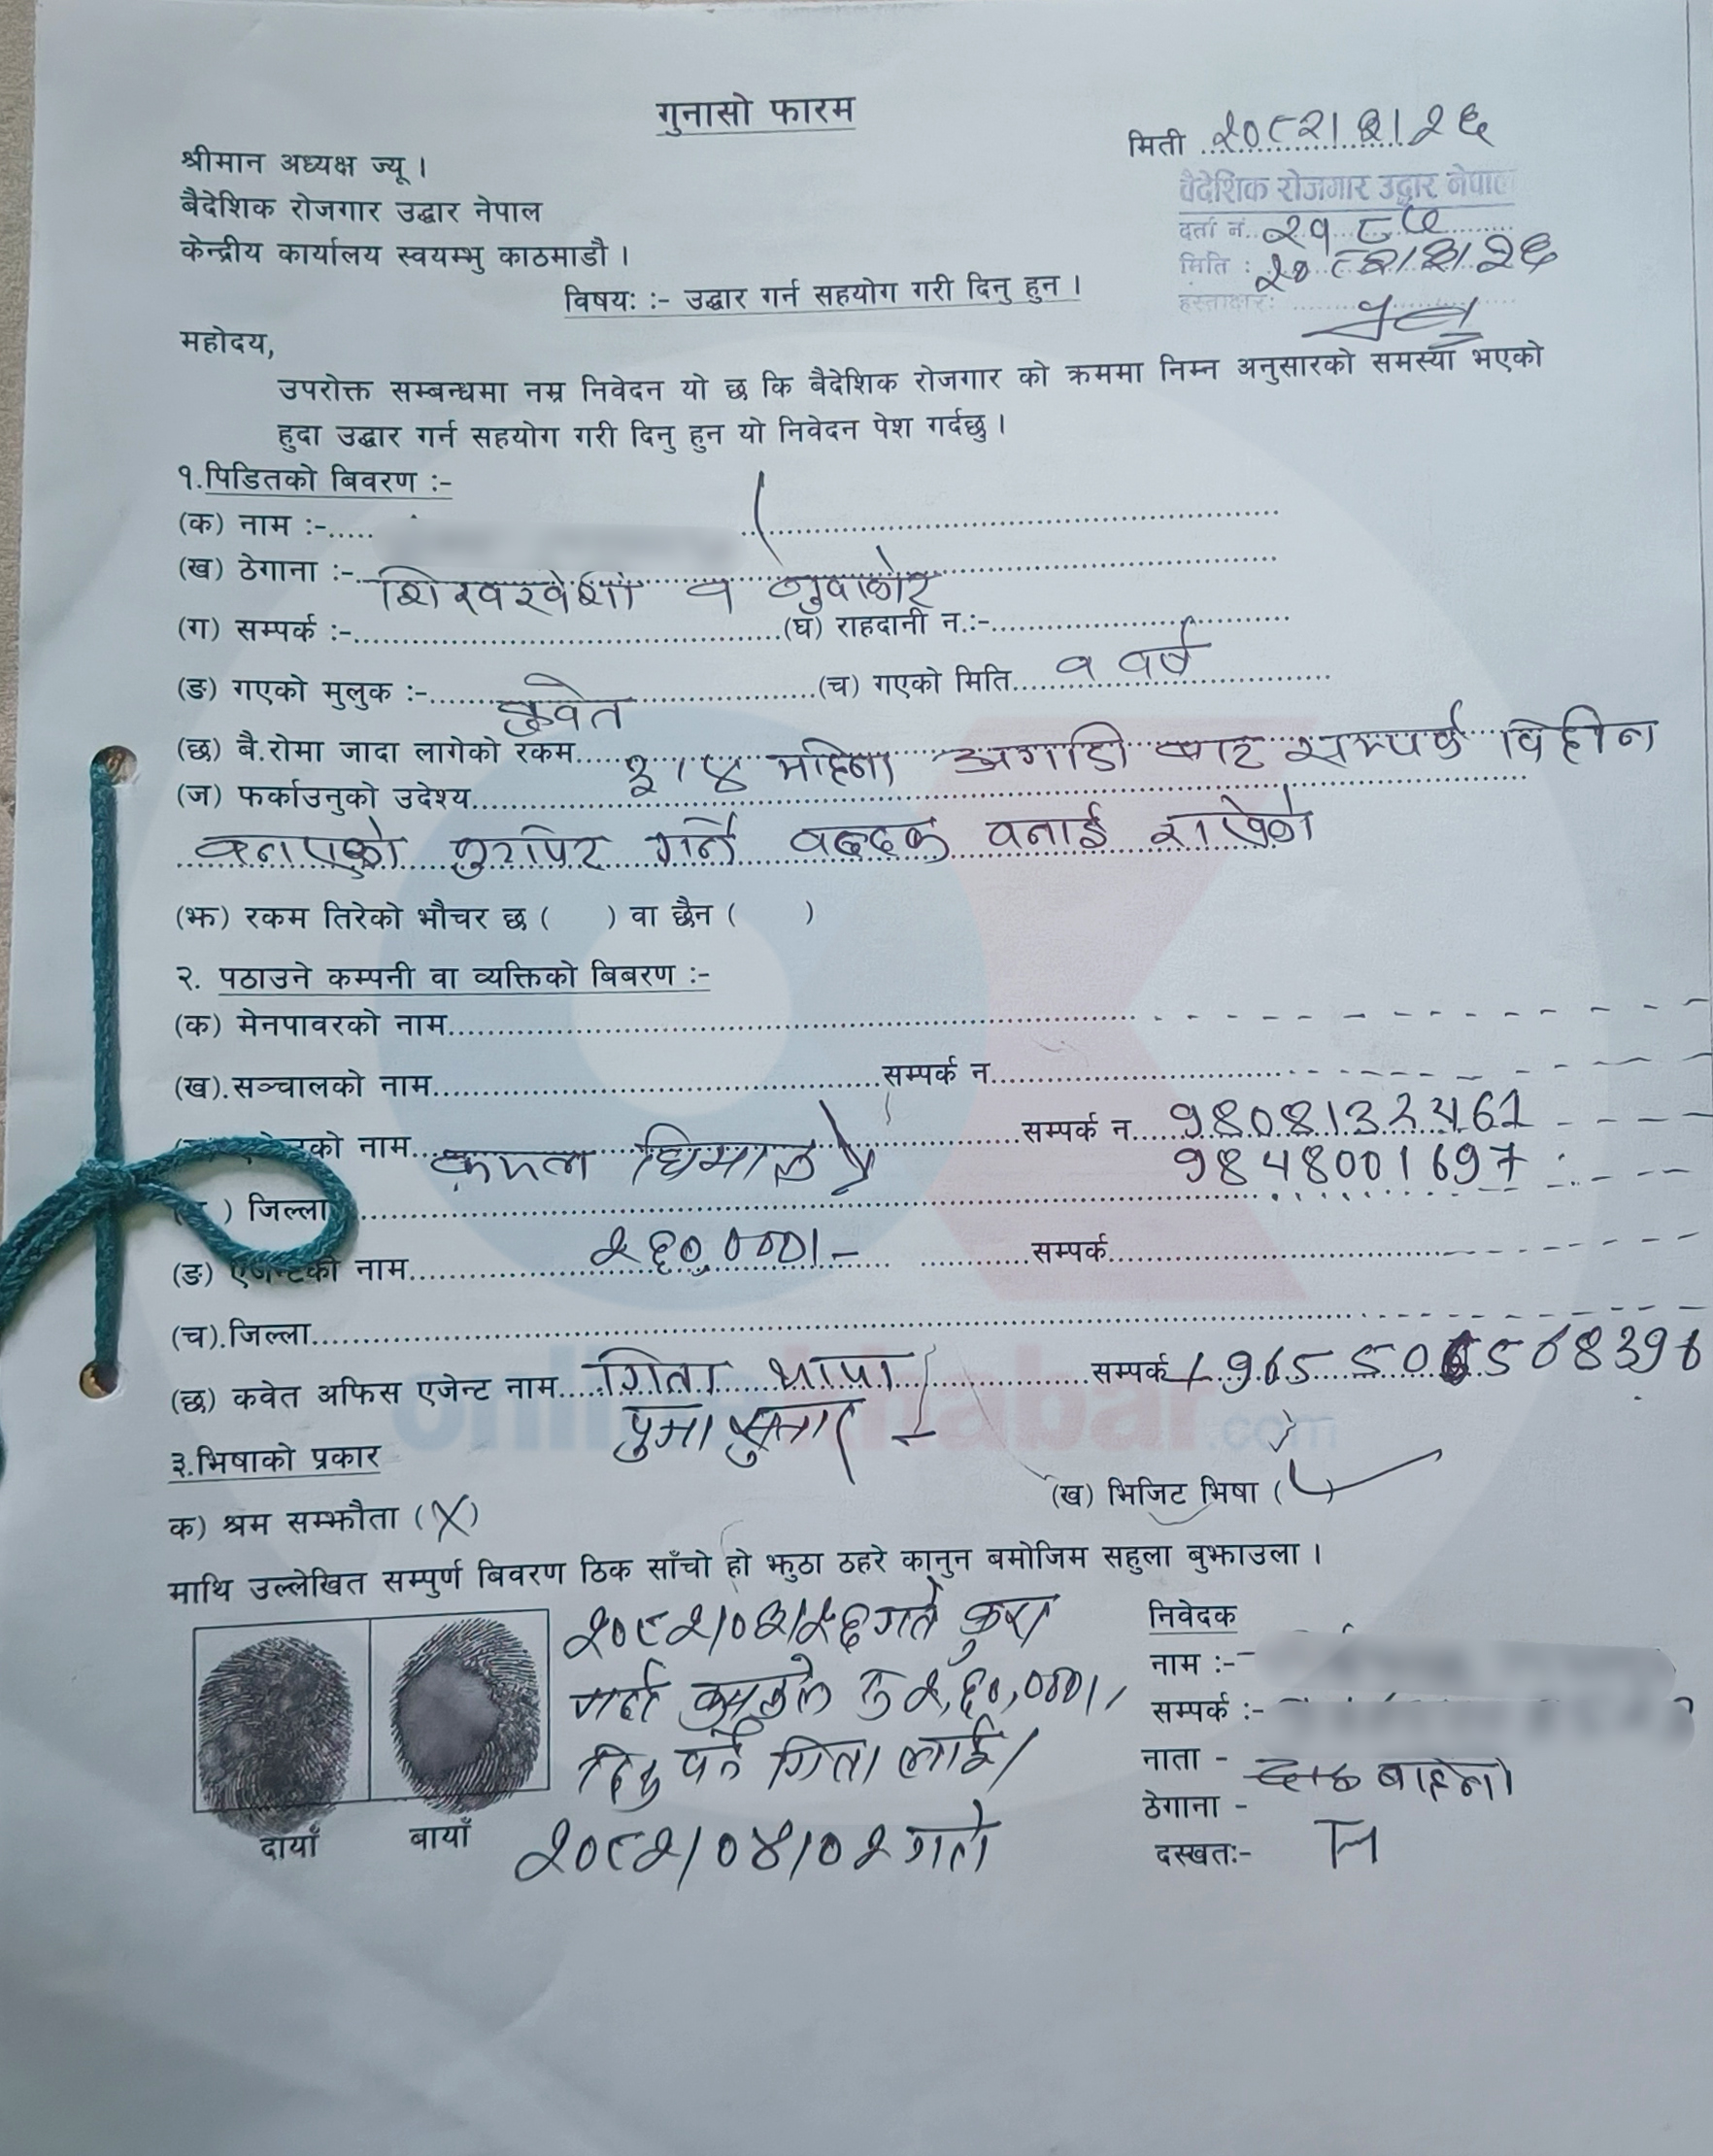 गुनासो फारम
मिती २०८२।३।२६
श्रीमान अध्यक्ष ज्यू ।
बैदेशिक रोजगार उद्धार नेपाल
केन्द्रीय कार्यालय स्वयम्भु काठमाडौ ।
वैदेशिक रोजगार उद्धार नेपाल
दर्ता नं.
मिति : २०८२।३।२६
हस्ताक्षर:
विषयः :- उद्धार गर्न सहयोग गरी दिनु हुन ।
महोदय,
उपरोक्त सम्बन्धमा नम्र निवेदन यो छ कि बैदेशिक रोजगार को क्रममा निम्न अनुसारको समस्या भएको
हुदा उद्धार गर्न सहयोग गरी दिनु हुन यो निवेदन पेश गर्दछु ।
१.पिडितको बिवरण :-
(क) नाम :-
(ख) ठेगाना :- १ नुवाकोट
(ग) सम्पर्क :- (घ) राहदानी न.:-
(ङ) गएको मुलुक :- कुवेत (च) गएको मिति १ वर्ष
(छ) बै.रोमा जादा लागेको रकम ३।४ महिना अगाडि बाट सम्पर्क विहीन
(ज) फर्काउनुको उदेश्य
बनाएको कुटपिट गर्ने बन्दक बनाई राखेको
(झ) रकम तिरेको भौचर छ ( ) वा छैन ( )
२. पठाउने कम्पनी वा व्यक्तिको बिबरण :-
(क) मेनपावरको नाम
(ख).सञ्चालको नाम सम्पर्क न.
को नाम कमल घिमाल सम्पर्क न.
9848001697
) जिल्ला
(ङ) एजेन्टको नाम २६०,०००।- सम्पर्क
(च).जिल्ला
(छ) कवेत अफिस एजेन्ट नाम गिता थापा सम्पर्क
पुजा सुनार
३.भिषाको प्रकार
क) श्रम सम्झौता (X) (ख) भिजिट भिषा ( )
माथि उल्लेखित सम्पुर्ण बिवरण ठिक साँचो हो झुठा ठहरे कानुन बमोजिम सहुला बुझाउला ।
२०८२/०३/२६ गते कुरा
गर्दा कमलले रु २,६०,०००।
दिनु पर्ने गिता लाई।
२०८२/०४/०२ गते
दायाँ बायाँ
निवेदक
नाम :-
सम्पर्क :-
नाता - बहिनी
ठेगाना -
दस्खतः-
onlinekhabar.com